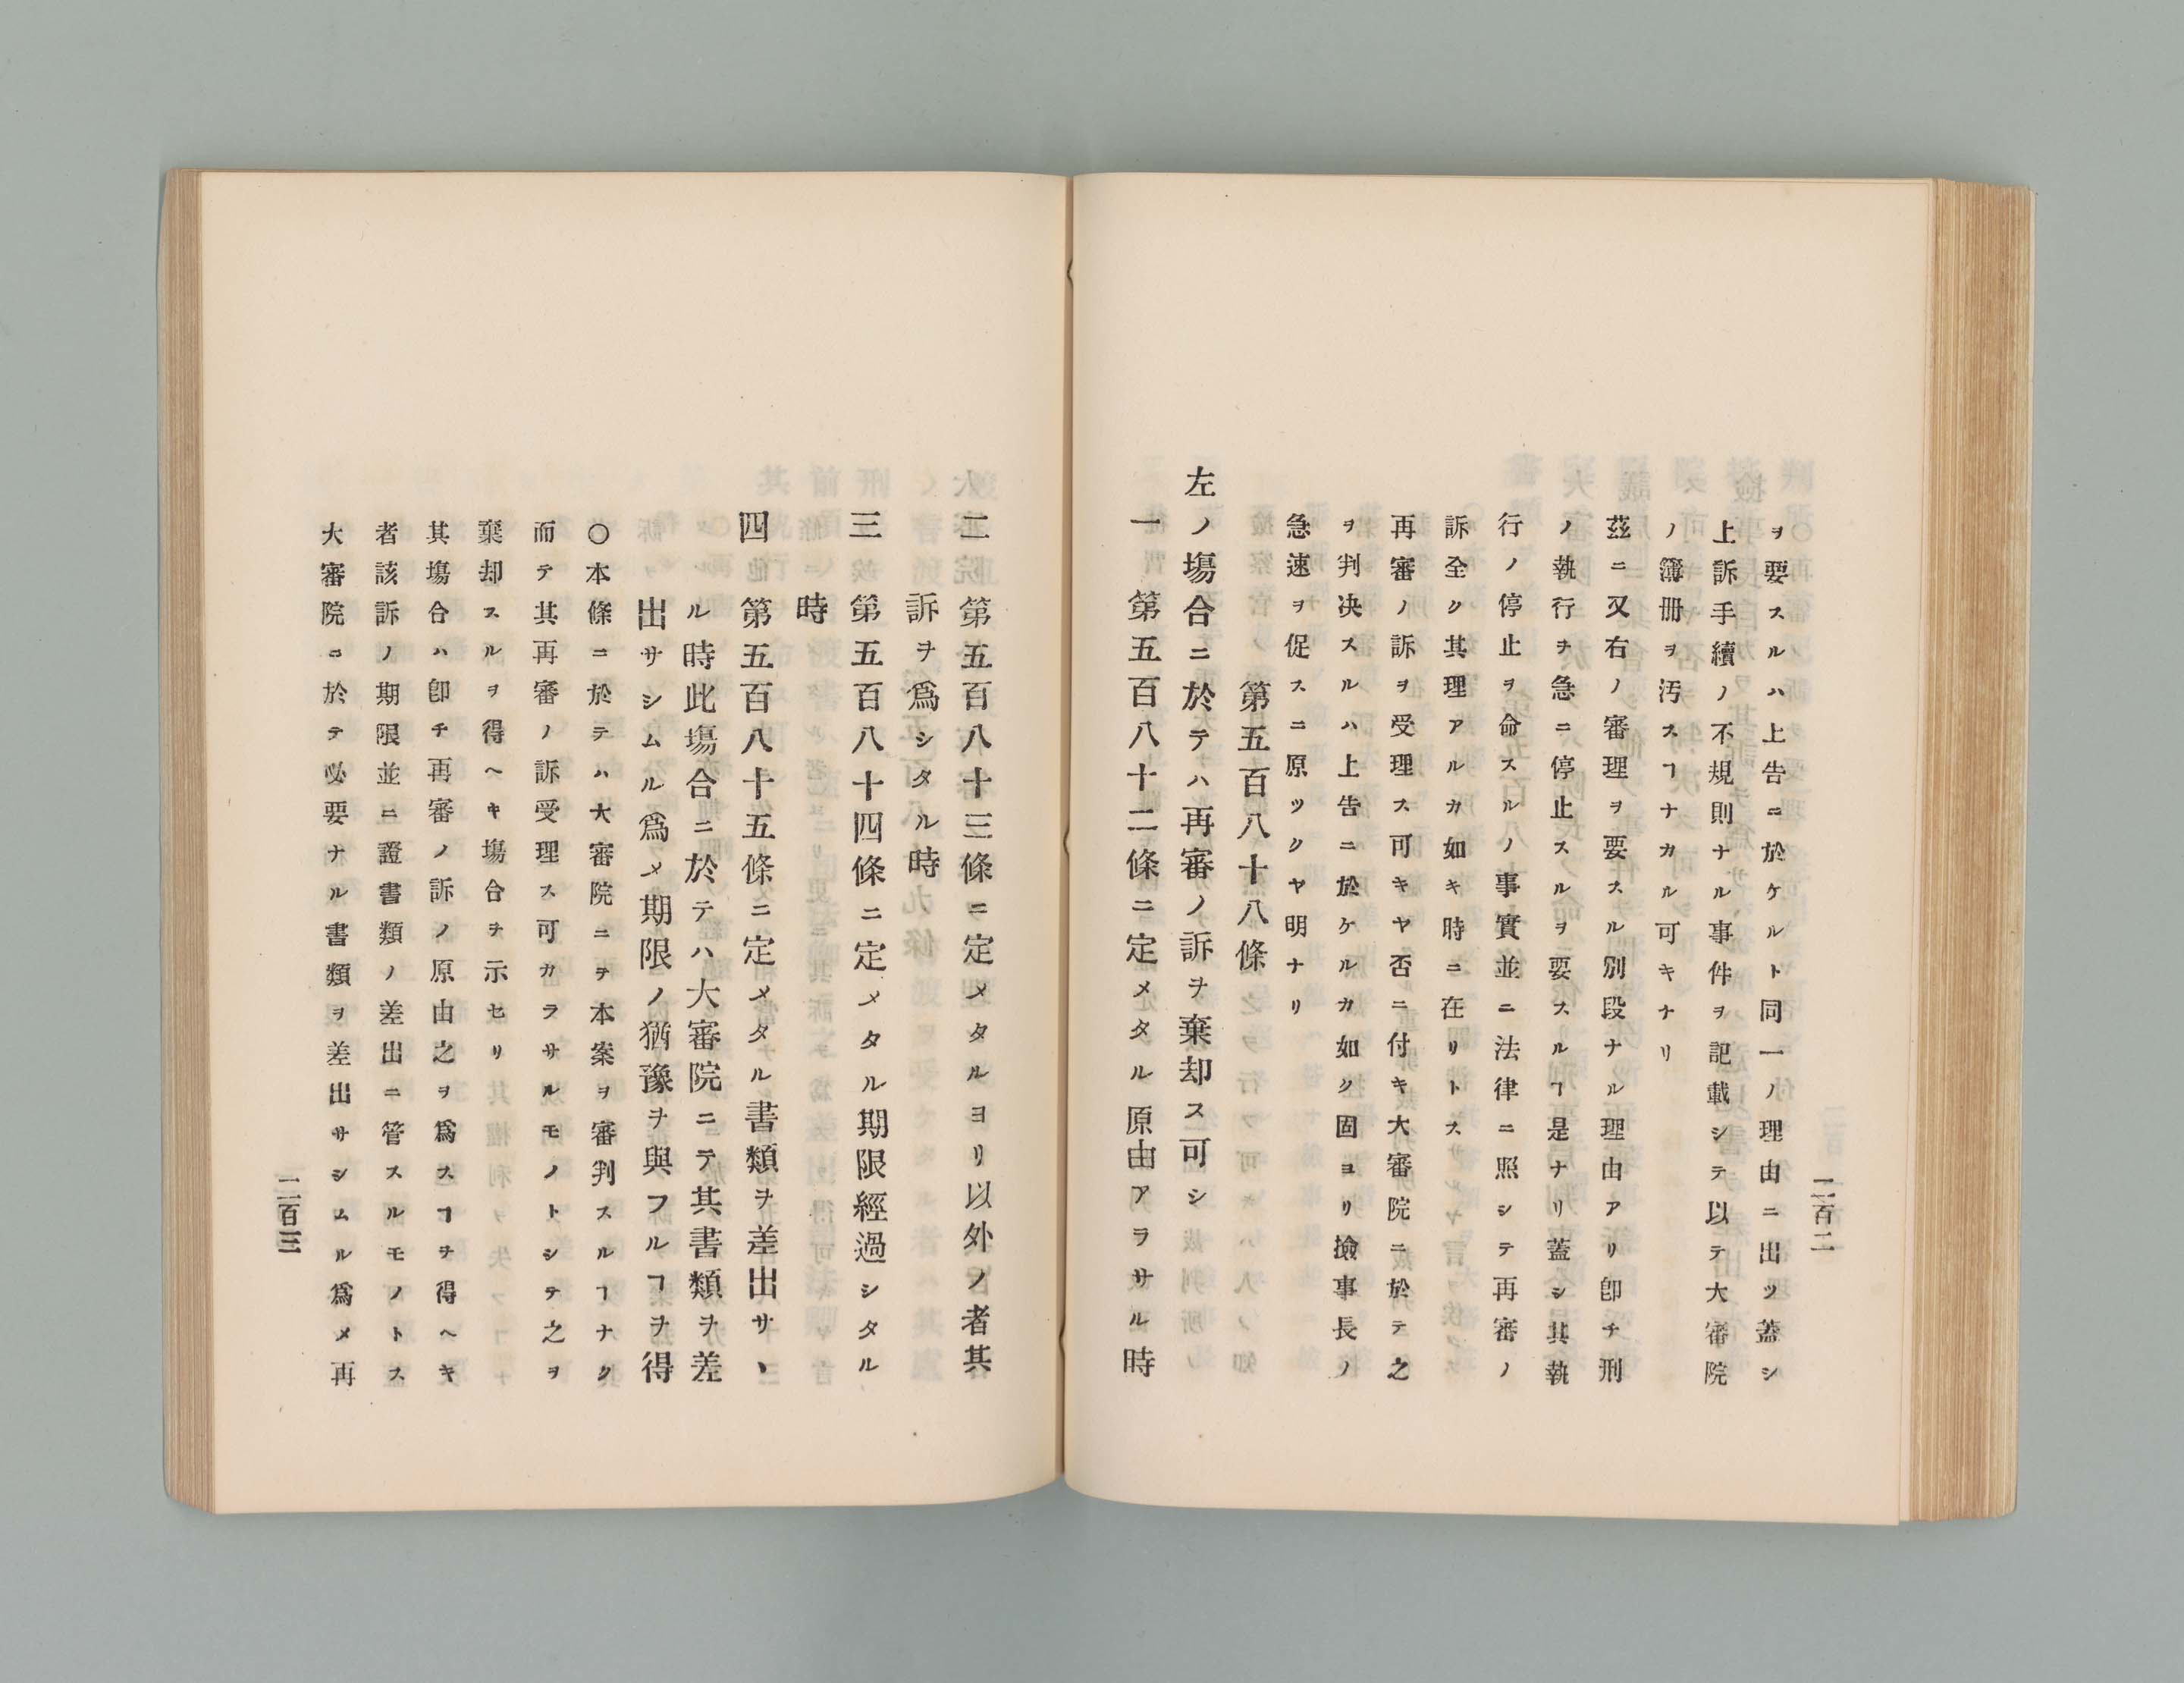 ヲ要スルハ上告ニ於ケルト同一ノ理由ニ出ツ蓋シ
上訴手續ノ不規則ナル事件ヲ記載シテ以テ大審院
ノ簿冊ヲ汚スヿナカル可キナリ
茲ニ又右ノ審理ヲ要スル別段ナル理由アリ卽チ刑
ノ執行ヲ急ニ停止スルヲ要スルヿ是ナリ蓋シ其執
行ノ停止ヲ命スルノ事實並ニ法律ニ照シテ再審ノ
訴全ク其理アルカ如キ時ニ在リトス
再審ノ訴ヲ受理ス可キヤ否ニ付キ大審院ニ於テ之
ヲ判决スルハ上告ニ於ケルカ如ク固ヨリ撿事長ノ
急速ヲ促スニ原ツクヤ明ナリ
第五百八十八條
左ノ塲合ニ於テハ再審ノ訴ヲ棄却ス可シ
一 第五百八十二條ニ定メタル原由アラサル時
二百二
二 第五百八十三條ニ定メタルヨリ以外ノ者其
訴ヲ爲シタル時
三 第五百八十四條ニ定メタル期限經過シタル
時
四 第五百八十五條ニ定メタル書類ヲ差出サヽ
ル時此塲合ニ於テハ大審院ニテ其書類ヲ差
出サシムル爲メ期限ノ猶豫ヲ與フルヿヲ得
〇本條ニ於テハ大審院ニヲ本案ヲ審判スルヿナク
而テ其再審ノ訴受理ス可カラサルモノトシテ之ヲ
棄却スルヲ得ヘキ塲合ヲ示セリ
其塲合ハ卽チ再審ノ訴ノ原由之ヲ爲スヿヲ得ヘキ
者該訴ノ期限並ニ證書類ノ差出ニ管スルモノトス
大審院ニ於テ必要ナル書類ヲ差出サシムル爲メ再
二百三